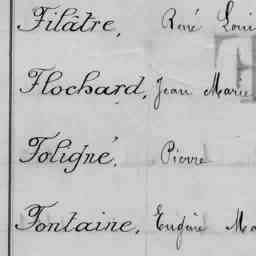 Filâtre, René Loui
Flochard, Jean Marie
Foligné, Pierre
Fontaine, Eugène Ma